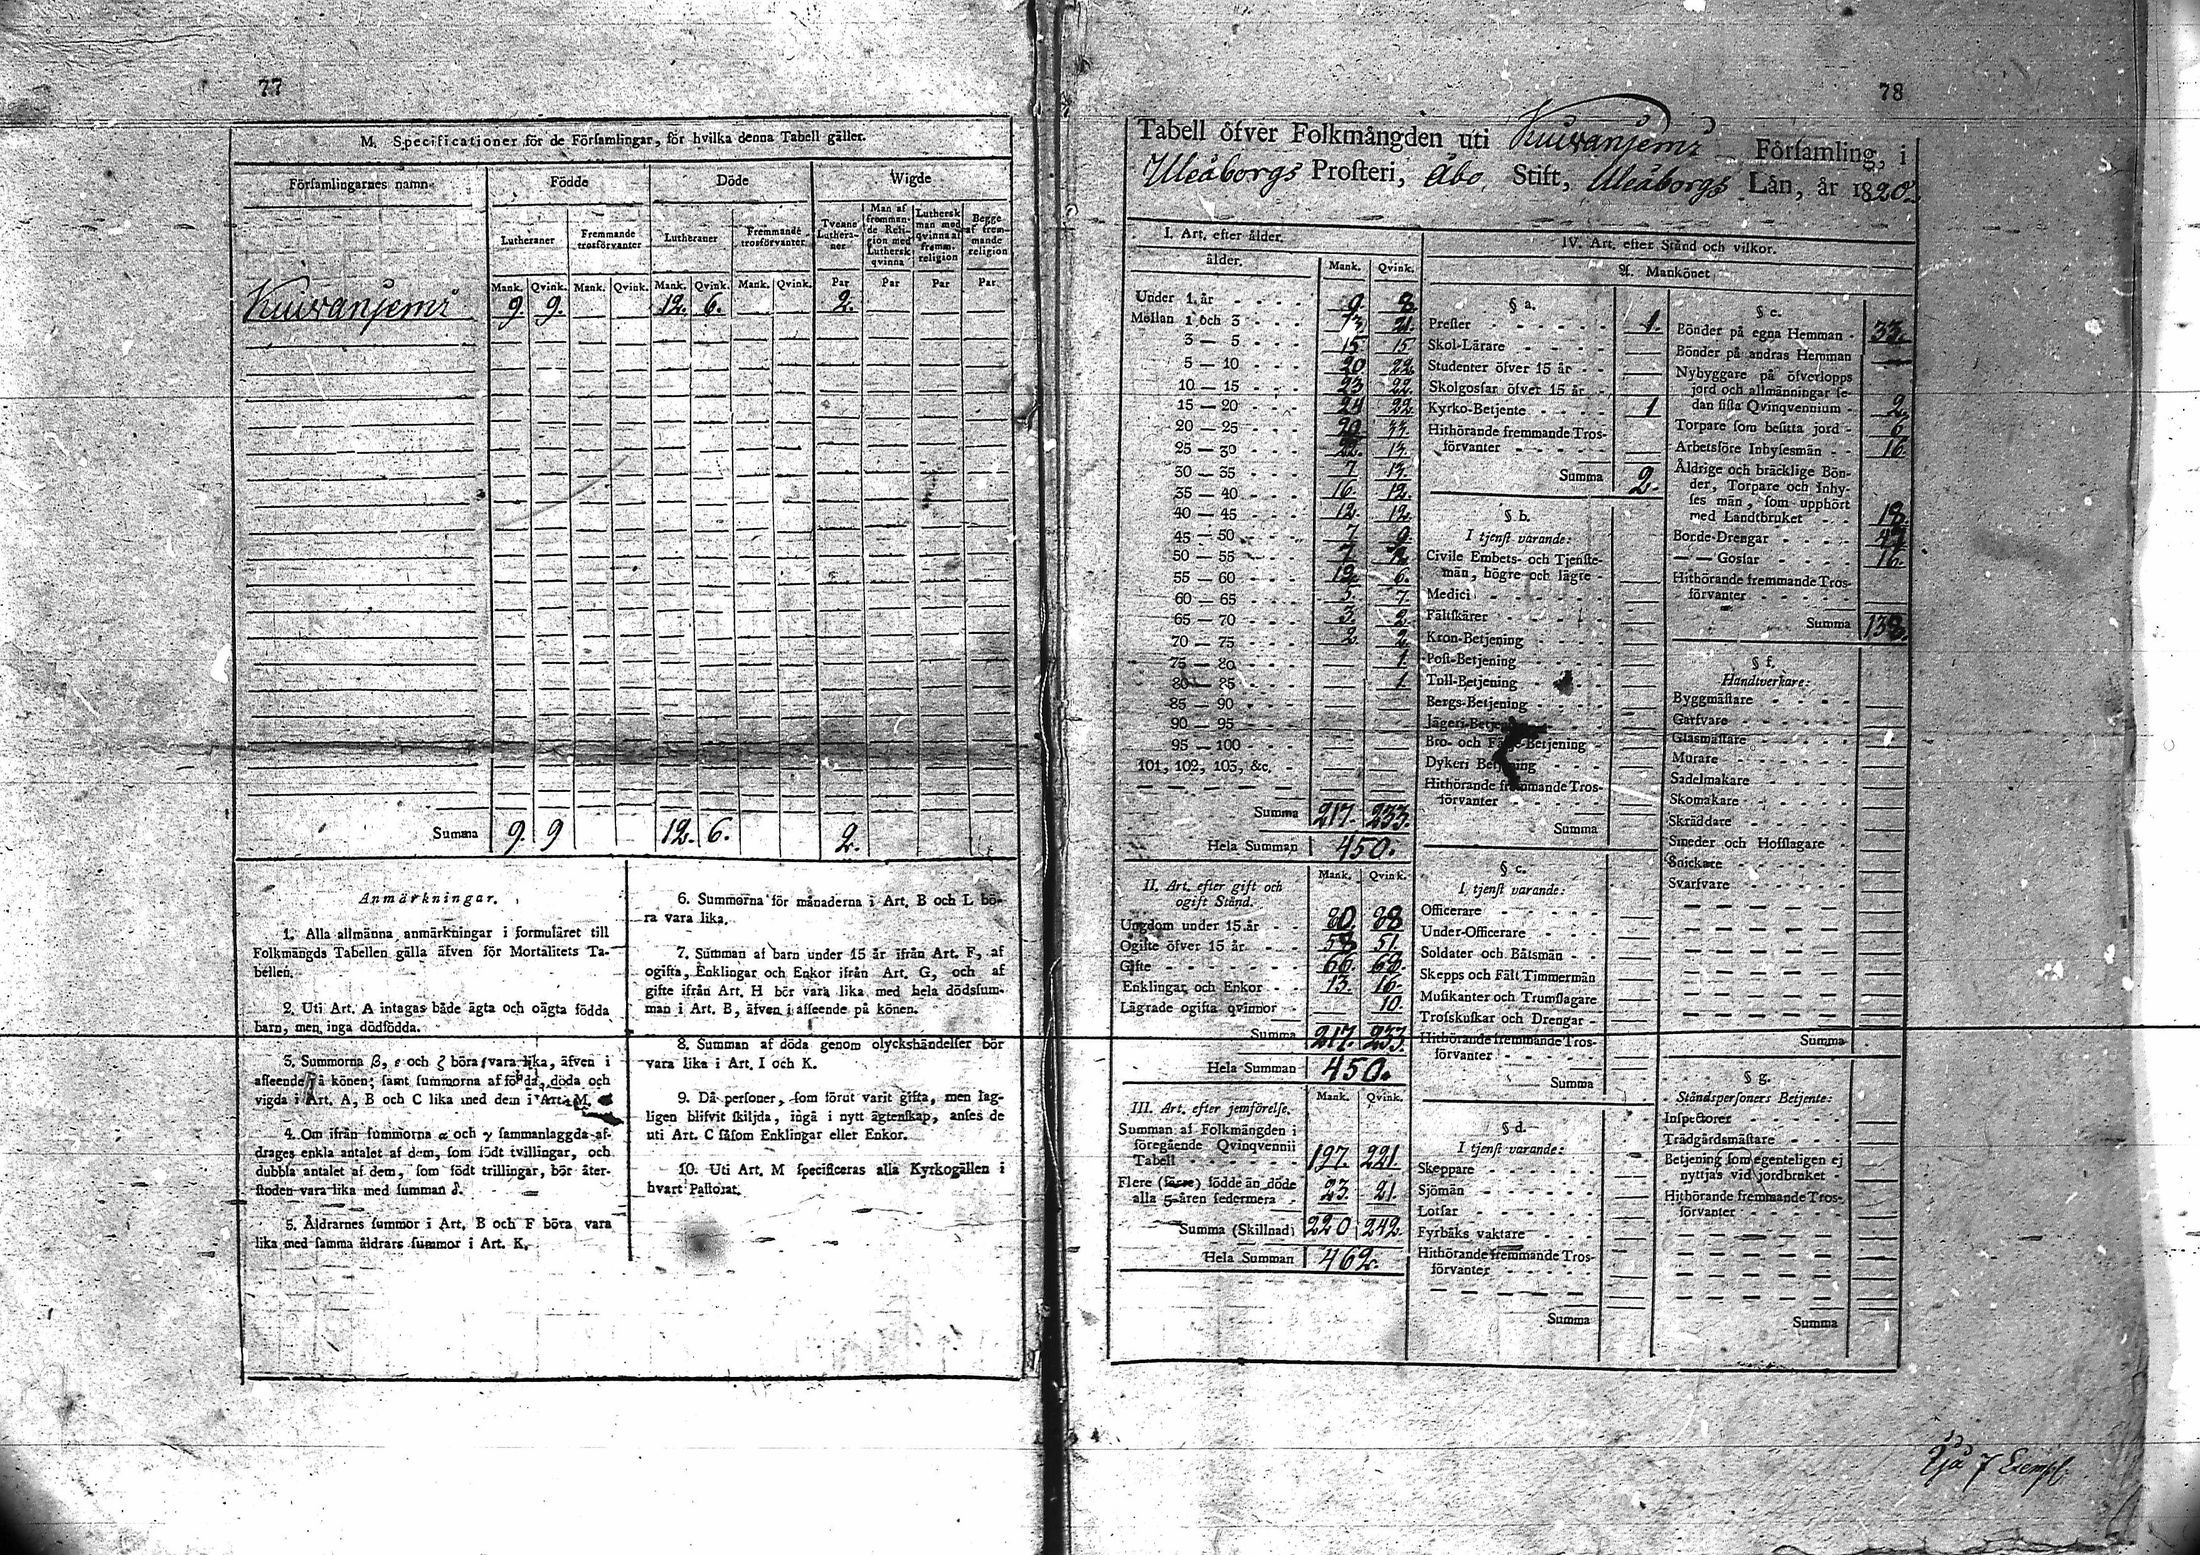 77
M. Specificationer för de Församlingar, för hvilka denna Tabell gäller.
Församlingarnes namn. Födde Döde Wigde
Lutheraner Fremmande trosförvanter Lutheraner Fremmande trosförvanter Tvenne Lutheraner Man af fremmande Religion med Luthersk qvinna Luthersk man med qvinna af fremm. religion Begge af fremmande religion
Mank. Qvink. Mank. Qvink. Mank. Qvink. Mank. Qvink. Par Par Par Par
Kuivanjemi 9. 9. 12. 6. 2.
Summa 9. 9 12. 6. 2.
Anmärkningar.
1. Alla allmänna anmärkningar i formuläret till
Folkmängds Tabellen gälla äfven för Mortalitets Ta-
bellen.
2. Uti Art. A intagas både ägta och oägta födda
barn, men inga dödfödda.
3. Summorna β, ε och ζ böra vara lika, äfven i
afseende å könen; samt summorna af födda, döda och
vigda i Art. A, B och C lika med dem i Art. M.
4. Om ifrån summorna α och γ sammanlaggda af-
drages enkla antalet af dem, som födt tvillingar, och
dubbla antalet af dem, som födt trillingar, bör åter-
stoden vara lika med summan δ.
5. Åldrarnes summor i Art. B och F böra vara
lika med samma åldrars summor i Art. K.
6. Summorna för månaderna i Art. B och L bö-
ra vara lika.
7. Summan af barn under 15 år ifrån Art. F, af
ogifta, Enklingar och Enkor ifrån Art. G, och af
gifte ifrån Art. H bör vara lika med hela dödssum-
man i Art. B, äfven i afseende på könen.
8. Summan af döda genom olyckshändelser bör
vara lika i Art. I och K.
9. Då personer, som förut varit gifta, men lag-
ligen blifvit skiljda, ingå i nytt ägtenskap, anses de
uti Art. C såsom Enklingar eller Enkor.
10. Uti Art. M specificeras alla Kyrkogällen i
hvart Pastorat.
78
Tabell öfver Folkmängden uti Kuivanjemi Församling, i
Uleåborgs Prosteri, Åbo Stift, Uleåborgs Län, år 1820.
I. Art. efter ålder.
ålder. Mank. Qvink.
Under 1 år 9. 8.
Mellan 1 och 3 13. 21.
3 — 5 15 15
5 — 10 20 22
10 — 15 23 22
15 — 20 24 22
20 — 25 33
25 — 30 22. 13.
30 — 35 7 13.
35 — 40 16. 12.
40 — 45 12. 12
45 — 50 7 9
50 — 55 7
55 — 60 12. 6.
60 — 65 5. 7.
65 — 70 3. 2
70 — 75 2. 2
75 — 80 1.
80 — 85 1
85 — 90
90 — 95
95 — 100
101, 102, 103, &c.
Summa 217. 233.
Hela Summan 450.
II. Art. efter gift och
ogift Stånd. Mank. Qvink.
Ungdom under 15 år 80. 88
Ogifte öfver 15 år 58 51.
Gifte 66. 68.
Enklingar och Enkor 13. 16.
Lägrade ogifta qvinnor 10.
Summa 217. 233.
Hela Summan 450.
III. Art. efter jemförelse. Mank. Qvink.
Summan af Folkmängden i
föregående Qvinqvennii
Tabell 197. 221.
Flere (färre) födde än döde
alla 5 åren sedermera 23. 21.
Summa (Skillnad) 220 242.
Hela Summan 462.
IV. Art. efter Stånd och vilkor.
A. Mankönet
§ a.
Prester 1.
Skol-Lärare
Studenter öfver 15 år
Skolgossar öfver 15 år
Kyrko-Betjente 1
Hithörande fremmande Tros-
förvanter
Summa 2.
§ b.
I tjenst varande:
Civile Embets- och Tjenste-
män, högre och lägre
Medici
Fältskärer
Kron-Betjening
Post-Betjening
Tull-Betjening
Bergs-Betjening
Jägeri-Betjening
Bro- och Färje-Betjening
Dykeri Betjening
Hithörande fremmande Tros-
förvanter
Summa
§ c.
I tjenst varande:
Officerare
Under-Officerare
Soldater och Båtsmän
Skepps och Fält Timmermän
Musikanter och Trumslagare
Trosskuskar och Drengar
Hithörande fremmande Tros-
förvanter
Summa
§ d.
I tjenst varande:
Skeppare
Sjömän
Lotsar
Fyrbåks vaktare
Hithörande fremmande Tros-
förvanter
Summa
§ e.
Bönder på egna Hemman 33.
Bönder på andras Hemman
Nybyggare på öfverlopps
jord och allmänningar se-
dan sista Qvinqvennium 2.
Torpare som besitta jord 6
Arbetsföre Inhysesmän 16.
Åldrige och bräcklige Bön-
der, Torpare och Inhy-
ses män, som upphört
med Landtbruket 18.
Borde-Drengar 47
— — Gossar 16.
Hithörande fremmande Tros-
förvanter
Summa 138.
§ f.
Handtverkare:
Byggmästare
Garfvare
Glasmästare
Murare
Sadelmakare
Skomakare
Skräddare
Smeder och Hofslagare
Snickare
Svarfvare
Summa
§ g.
Ståndspersoners Betjente:
Inspectorer
Trädgårdsmästare
Betjening som egenteligen ej
nyttjas vid jordbruket
Hithörande fremmande Tros-
förvanter
Summa
7 Exempl.